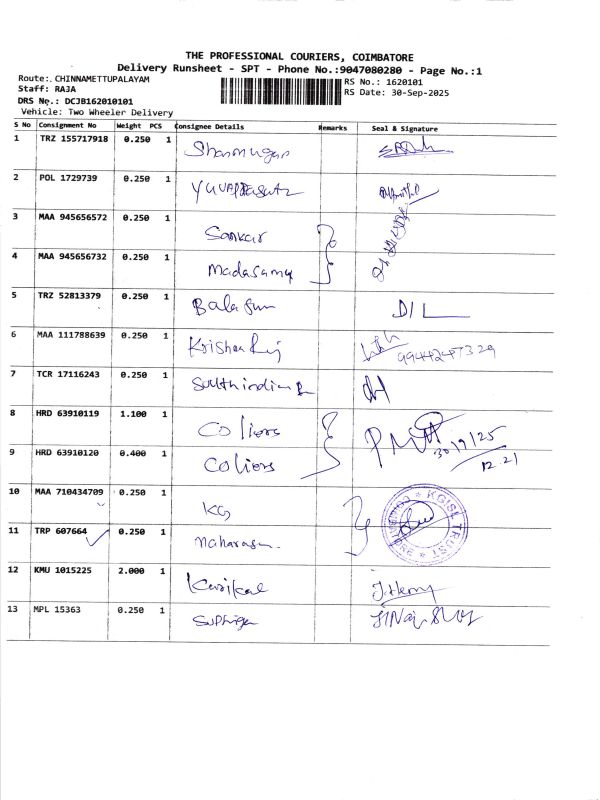 THE PROFESSIONAL COURIERS, COIMBATORE
Delivery Runsheet - SPT - Phone No.:9047080280 - Page No.:1
Route:. CHINNAMETTUPALAYAM RS No.: 1620101
Staff: RAJA RS Date: 30-Sep-2025
DRS No.: DCJB162010101
Vehicle: Two Wheeler Delivery
S No Consignment No Weight PCS Consignee Details Remarks Seal & Signature
1 TRZ 155717918 0.250 1 Shanmugan
2 POL 1729739 0.250 1
3 MAA 945656572 0.250 1 Sankar
4 MAA 945656732 0.250 1 Madasamy
5 TRZ 52813379 0.250 1 Bala
6 MAA 111788639 0.250 1 Krishna Raj 9944247329
7 TCR 17116243 0.250 1 South indian B
8 HRD 63910119 1.100 1 Coliers
30/9/25
12.21
9 HRD 63910120 0.400 1 Coliers
10 MAA 710434709 0.250 1 KG
KGISL TRUST COIMBATORE
11 TRP 607664 0.250 1
12 KMU 1015225 2.000 1 Karikal J. Henry
13 MPL 15363 0.250 1